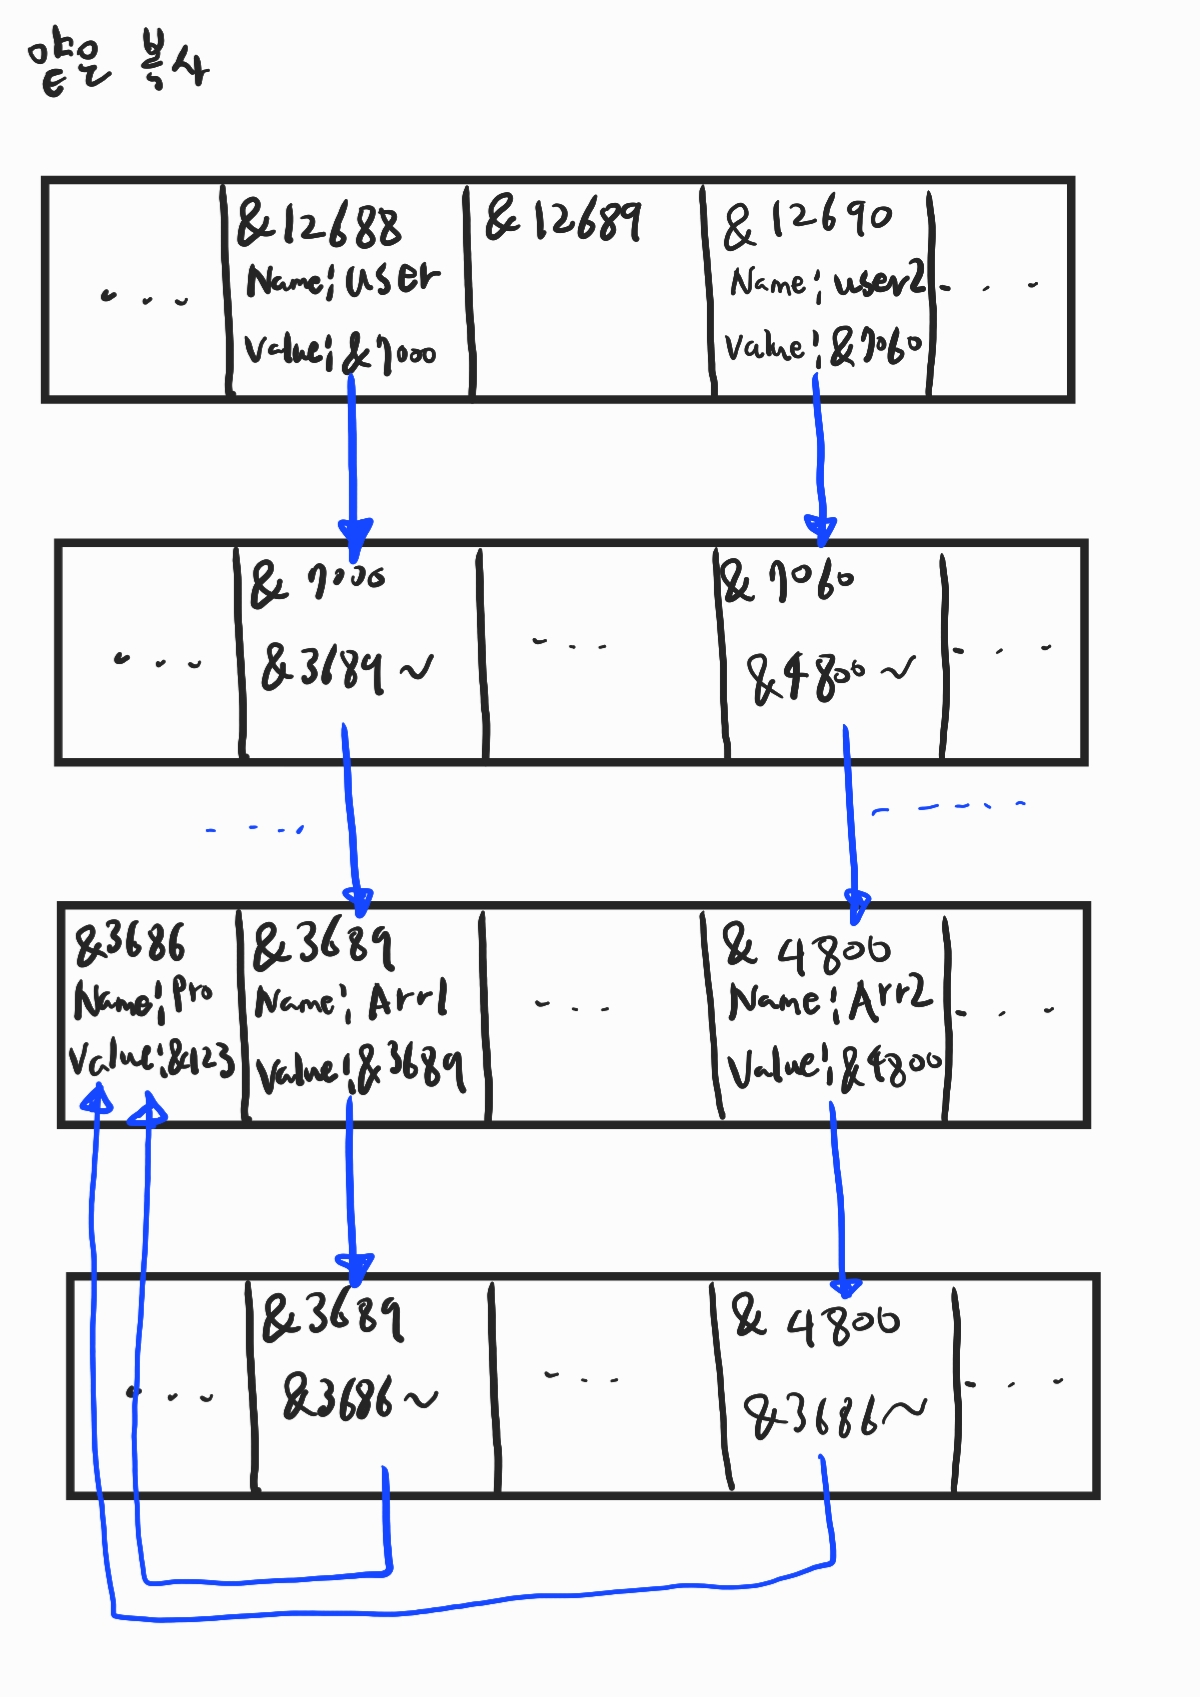 얕은 복사
&12688
Name: user
Value: &7000
&12689
&12690
Name: user2
Value: &7060
&7000
&3689~
&7060
&4800~
&3686
Name: Pro
Value: &123
&3689
Name: Arr1
Value: &3689
&4800
Name: Arr2
Value: &4800
&3689
&3686~
&4800
&3686~